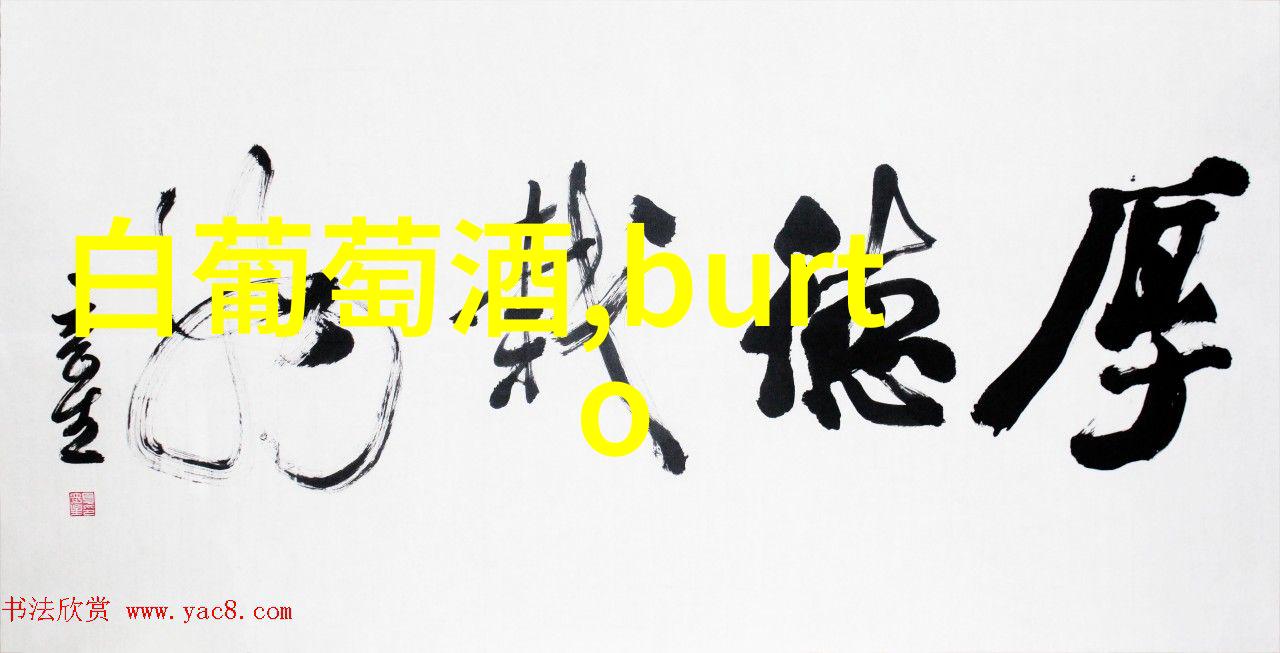 厚德载物
白葡萄酒,burt
o
书法欣赏 www.yac8.com